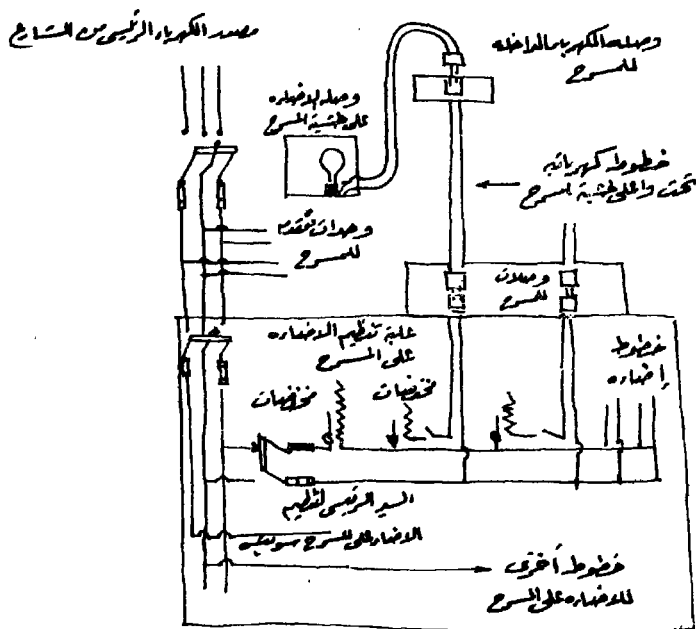 مصدر الكهرباء الرئيسى من الشارع
وصله الكهرباء الداخله
للمسرح
وصله الاضاءه
على خشبة المسرح
خطوط كهربائيه
تحت واعلى خشبة المسرح
وحدات مقدم
للمسرح
وصلات
للمسرح
علبة تنظيم الاضاءه
على المسرح
خطوط
إضاءه
مخفضات
مخفضات
الرئيسى لتنظيم
الاضاءه على المسرح
خطوط أخرى
للاضاءه على المسرح